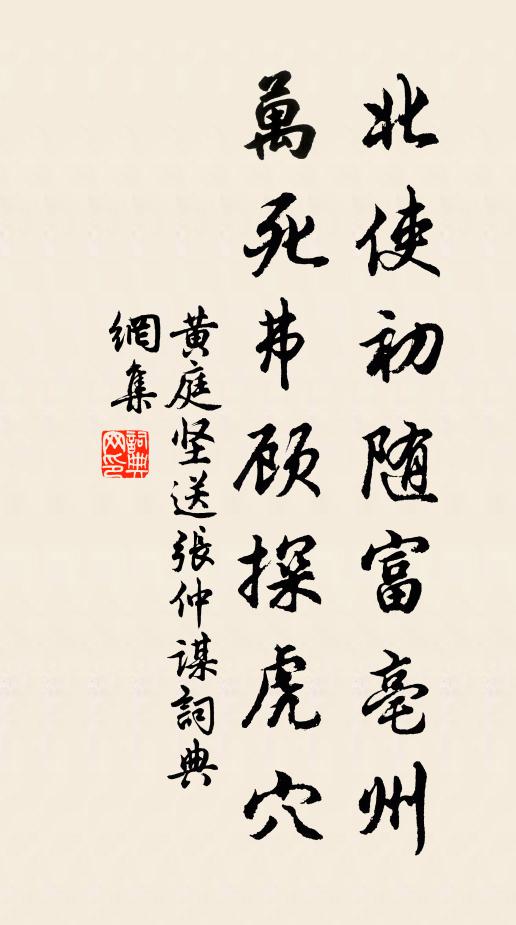 北使初随富亳州
萬死弗顾探虎穴
黄庭坚送張仲謀詞典
網集
詞典
网印